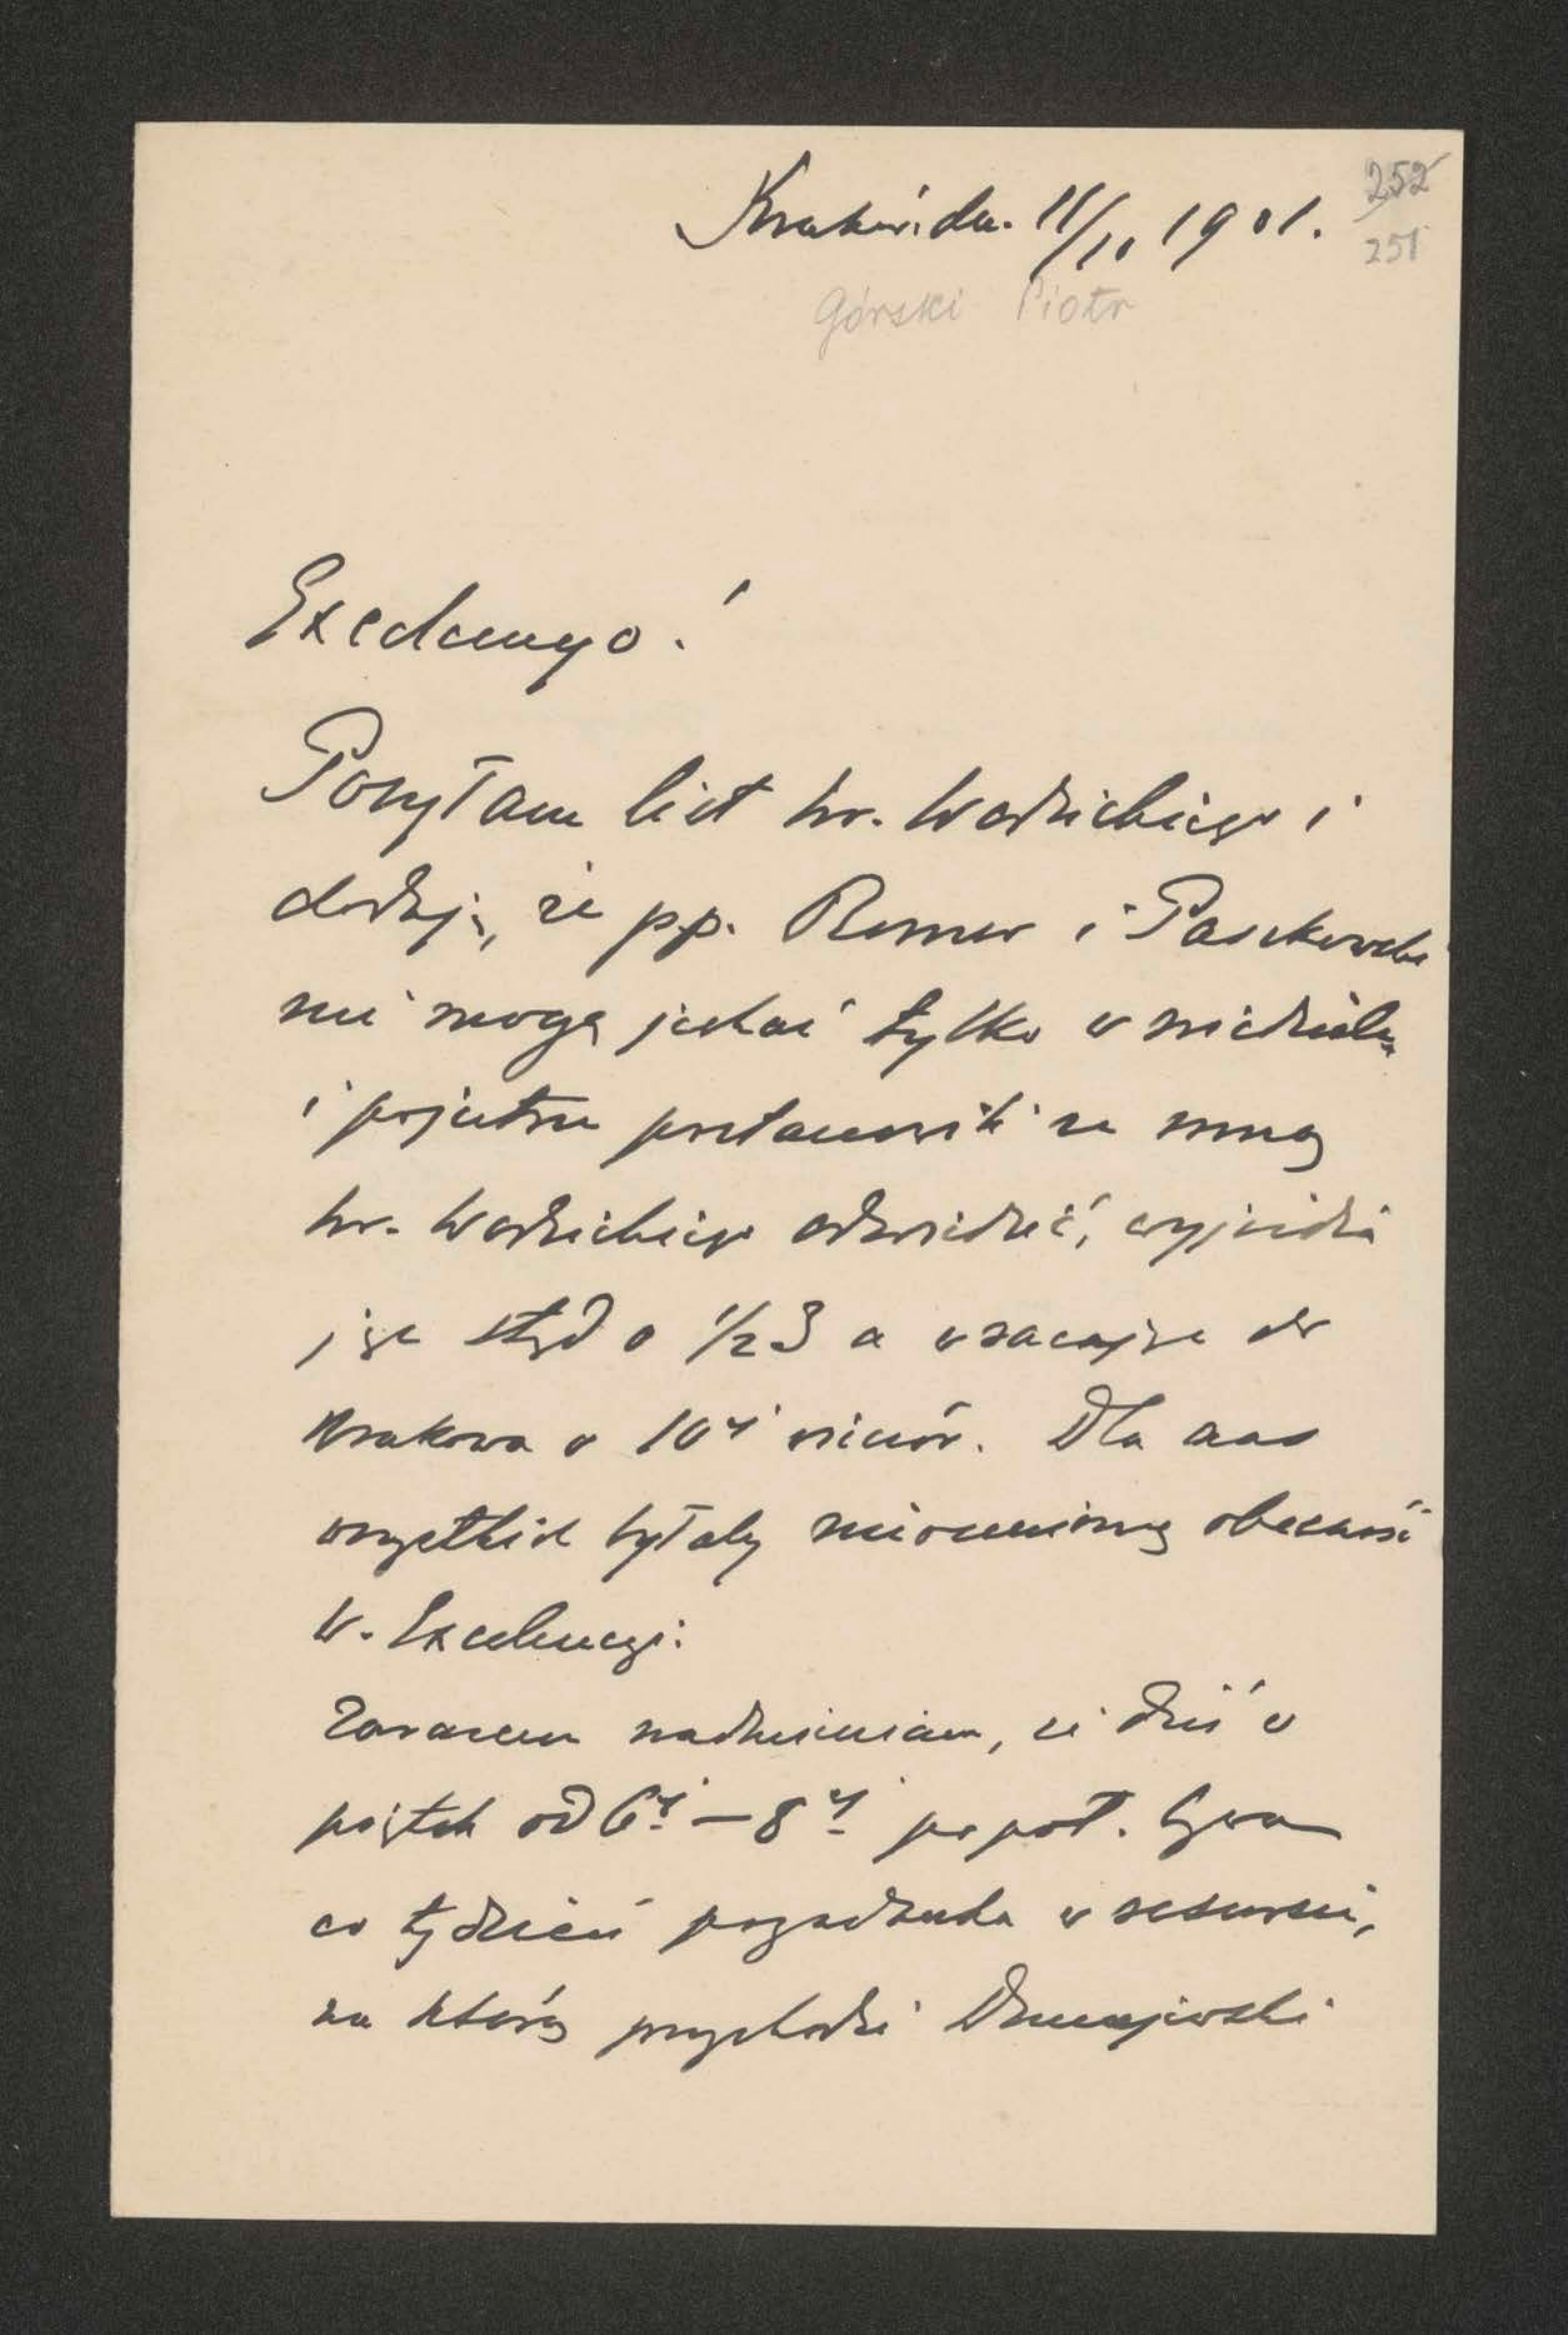 Kraków, dn. 11/10 1901.
252
251
Górski Piotr
Excelencyo!
Posyłam list hr. Wodzickiego i
dodaję, że pp. Romer i Paszkowski
nie mogą jechać tylko w niedzielę
i pojutrze postanowili ze mną
hr. Wodzickiego odwiedzić, wyjeżdża
się stąd o 1/2 3 a wraca się do
Krakowa o 10ej wieczór. Dla nas
wszystkich byłaby nieocenioną obecność
W. Excelencyi.
Zarazem nadmieniam, że dziś w
piątek od 6ej – 8ej po poł. bywa
co tydzień pogadanka w resursie,
na którą przychodzi Dunajewski